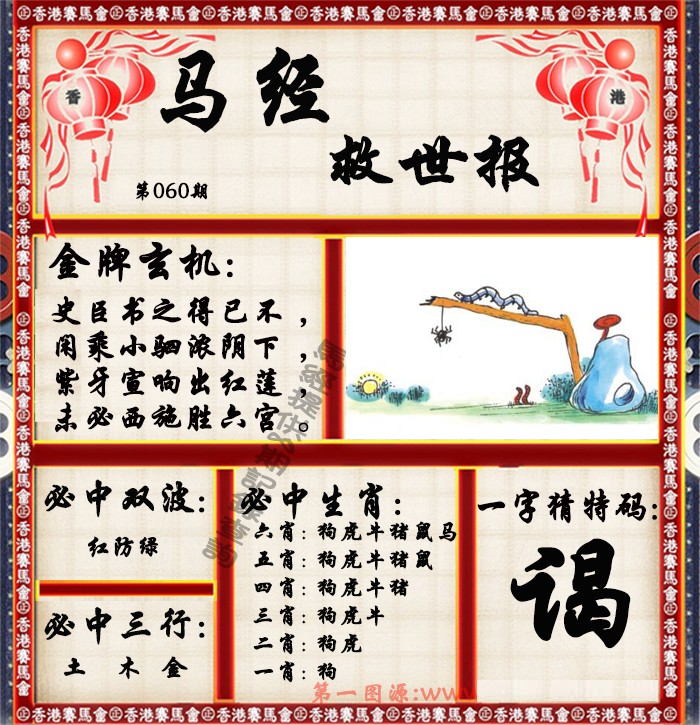 香港賽馬會
香
港
马经
救世报
第060期
金牌玄机:
史臣书之得已不，
闲乘小驷浓阴下，
紫牙宣响出红莲，
未必西施胜六宫。
必中双波:
红防绿
必中三行:
土 木 金
必中生肖:
六肖:狗虎牛猪鼠马
五肖:狗虎牛猪鼠
四肖:狗虎牛猪
三肖:狗虎牛
二肖:狗虎
一肖:狗
一字猜特码:
谒
第一图源:www